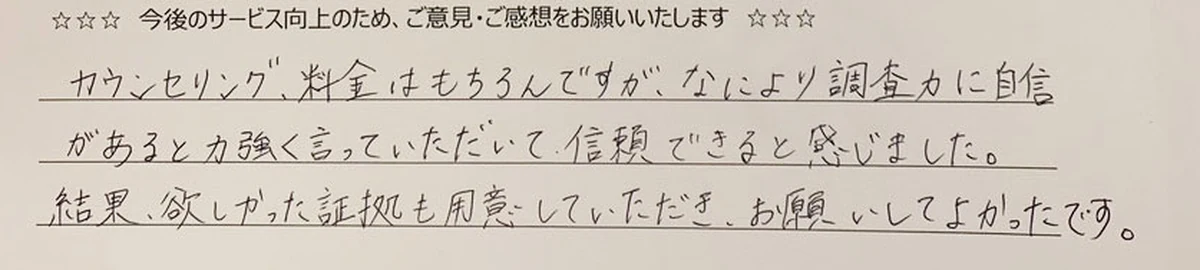 ☆☆☆ 今後のサービス向上のため、ご意見・ご感想をお願いいたします ☆☆☆
カウンセリング、料金はもちろんですが、なにより調査力に自信
があると力強く言っていただいて、信頼できると感じました。
結果、欲しかった証拠も用意していただき、お願いしてよかったです。